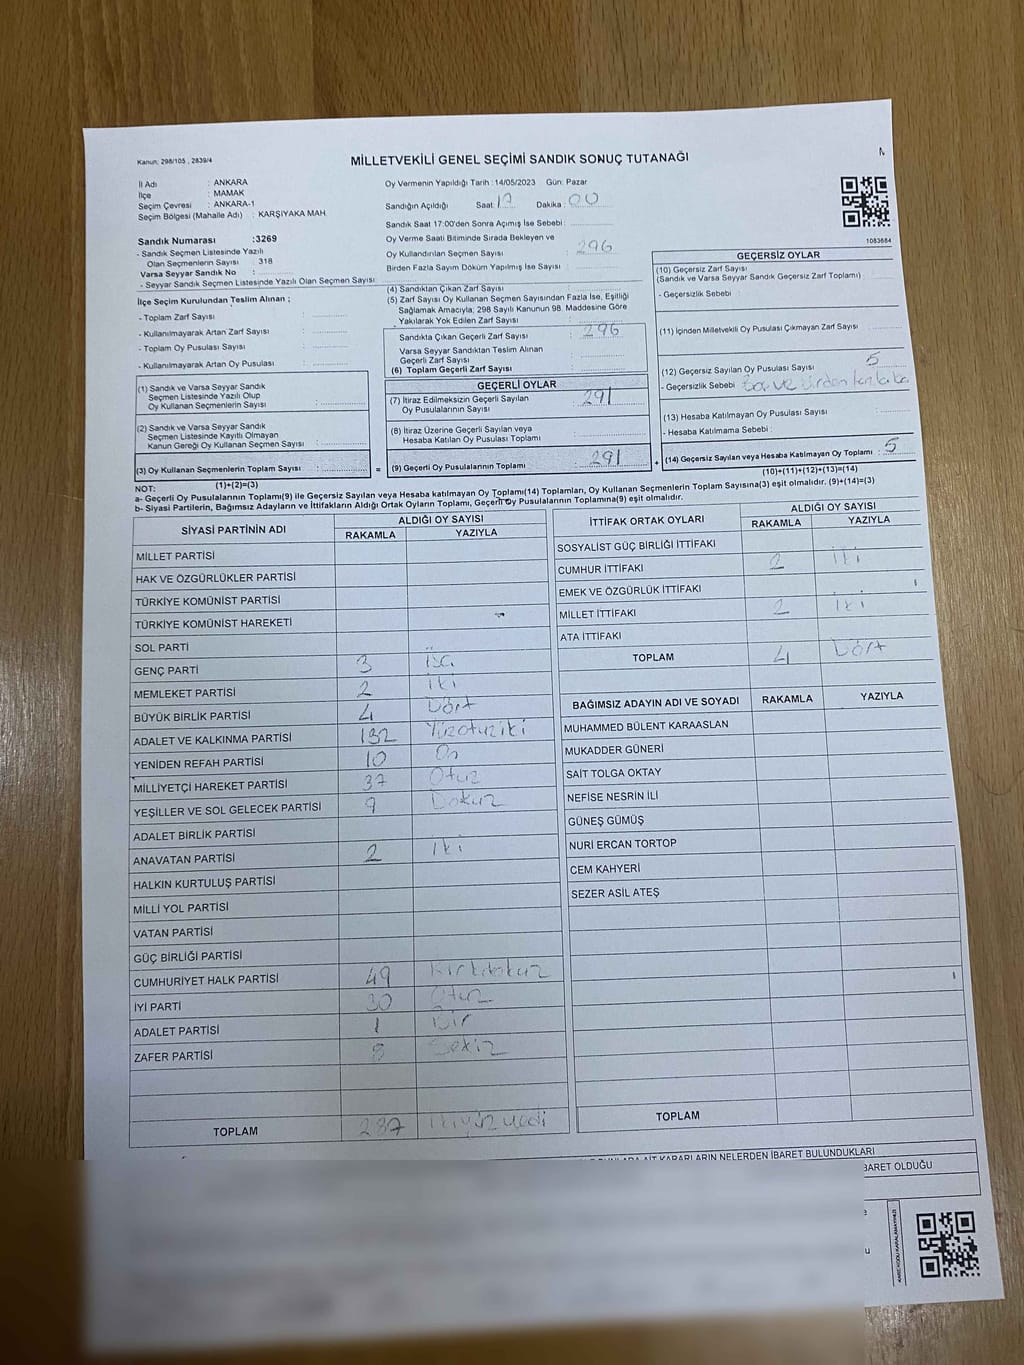 Kanun: 298/105 , 2839/4
MİLLETVEKİLİ GENEL SEÇİMİ SANDIK SONUÇ TUTANAĞI
İl Adı : ANKARA
İlçe : MAMAK
Seçim Çevresi : ANKARA-1
Seçim Bölgesi (Mahalle Adı) : KARŞIYAKA MAH.
Sandık Numarası :3269
- Sandık Seçmen Listesinde Yazılı
Olan Seçmenlerin Sayısı : 318
Varsa Seyyar Sandık No :
- Seyyar Sandık Seçmen Listesinde Yazılı Olan Seçmen Sayısı :
Oy Vermenin Yapıldığı Tarih :14/05/2023 Gün: Pazar
Sandığın Açıldığı Saat: 17 Dakika : 00
Sandık Saat 17:00'den Sonra Açılmış İse Sebebi :
Oy Verme Saati Bitiminde Sırada Bekleyen ve
Oy Kullandırılan Seçmen Sayısı : 296
Birden Fazla Sayım Döküm Yapılmış İse Sayısı :
1083684
İlçe Seçim Kurulundan Teslim Alınan ;
- Toplam Zarf Sayısı :
- Kullanılmayarak Artan Zarf Sayısı :
- Toplam Oy Pusulası Sayısı :
- Kullanılmayarak Artan Oy Pusulası :
(1) Sandık ve Varsa Seyyar Sandık
Seçmen Listesinde Yazılı Olup
Oy Kullanan Seçmenlerin Sayısı :
(2) Sandık ve Varsa Seyyar Sandık
Seçmen Listesinde Kayıtlı Olmayan
Kanun Gereği Oy Kullanan Seçmen Sayısı :
(3) Oy Kullanan Seçmenlerin Toplam Sayısı : =
(1)+(2)=(3)
(4) Sandıktan Çıkan Zarf Sayısı :
(5) Zarf Sayısı Oy Kullanan Seçmen Sayısından Fazla İse, Eşitliği
Sağlamak Amacıyla; 298 Sayılı Kanunun 98. Maddesine Göre
Yakılarak Yok Edilen Zarf Sayısı :
Sandıkta Çıkan Geçerli Zarf Sayısı : 296
Varsa Seyyar Sandıktan Teslim Alınan
Geçerli Zarf Sayısı :
(6) Toplam Geçerli Zarf Sayısı :
GEÇERLİ OYLAR
(7) İtiraz Edilmeksizin Geçerli Sayılan
Oy Pusulalarının Sayısı : 291
(8) İtiraz Üzerine Geçerli Sayılan veya
Hesaba Katılan Oy Pusulası Toplamı :
(9) Geçerli Oy Pusulalarının Toplamı : 291 +
GEÇERSİZ OYLAR
(10) Geçersiz Zarf Sayısı
(Sandık ve Varsa Seyyar Sandık Geçersiz Zarf Toplamı) :
- Geçersizlik Sebebi :
(11) İçinden Milletvekili Oy Pusulası Çıkmayan Zarf Sayısı :
(12) Geçersiz Sayılan Oy Pusulası Sayısı : 5
- Geçersizlik Sebebi
(13) Hesaba Katılmayan Oy Pusulası Sayısı :
- Hesaba Katılmama Sebebi :
(14) Geçersiz Sayılan veya Hesaba Katılmayan Oy Toplamı : 5
(10)+(11)+(12)+(13)=(14)
NOT:
a- Geçerli Oy Pusulalarının Toplamı(9) ile Geçersiz Sayılan veya Hesaba katılmayan Oy Toplamı(14) Toplamları, Oy Kullanan Seçmenlerin Toplam Sayısına(3) eşit olmalıdır. (9)+(14)=(3)
b- Siyasi Partilerin, Bağımsız Adayların ve İttifakların Aldığı Ortak Oyların Toplamı, Geçerli Oy Pusulalarının Toplamına(9) eşit olmalıdır.
SİYASİ PARTİNİN ADI ALDIĞI OY SAYISI
RAKAMLA YAZIYLA
MİLLET PARTİSİ
HAK VE ÖZGÜRLÜKLER PARTİSİ
TÜRKİYE KOMÜNİST PARTİSİ
TÜRKİYE KOMÜNİST HAREKETİ
SOL PARTİ
GENÇ PARTİ 3 üç
MEMLEKET PARTİSİ 2 iki
BÜYÜK BİRLİK PARTİSİ 4 Dört
ADALET VE KALKINMA PARTİSİ 132 Yüzotuziki
YENİDEN REFAH PARTİSİ 10 On
MİLLİYETÇİ HAREKET PARTİSİ 37 Otuz
YEŞİLLER VE SOL GELECEK PARTİSİ 9 Dokuz
ADALET BİRLİK PARTİSİ
ANAVATAN PARTİSİ 2 iki
HALKIN KURTULUŞ PARTİSİ
MİLLİ YOL PARTİSİ
VATAN PARTİSİ
GÜÇ BİRLİĞİ PARTİSİ
CUMHURİYET HALK PARTİSİ 49 Kırkdokuz
İYİ PARTİ 30 Otuz
ADALET PARTİSİ 1 Bir
ZAFER PARTİSİ 8 Sekiz
TOPLAM 287
İTTİFAK ORTAK OYLARI ALDIĞI OY SAYISI
RAKAMLA YAZIYLA
SOSYALİST GÜÇ BİRLİĞİ İTTİFAKI
CUMHUR İTTİFAKI 2 iki
EMEK VE ÖZGÜRLÜK İTTİFAKI
MİLLET İTTİFAKI 2 iki
ATA İTTİFAKI
TOPLAM 4 Dört
BAĞIMSIZ ADAYIN ADI VE SOYADI RAKAMLA YAZIYLA
MUHAMMED BÜLENT KARAASLAN
MUKADDER GÜNERİ
SAİT TOLGA OKTAY
NEFİSE NESRİN İLİ
GÜNEŞ GÜMÜŞ
NURİ ERCAN TORTOP
CEM KAHYERİ
SEZER ASİL ATEŞ
TOPLAM
KARARLARIN NELERDEN İBARET BULUNDUKLARI
BARET OLDUĞU